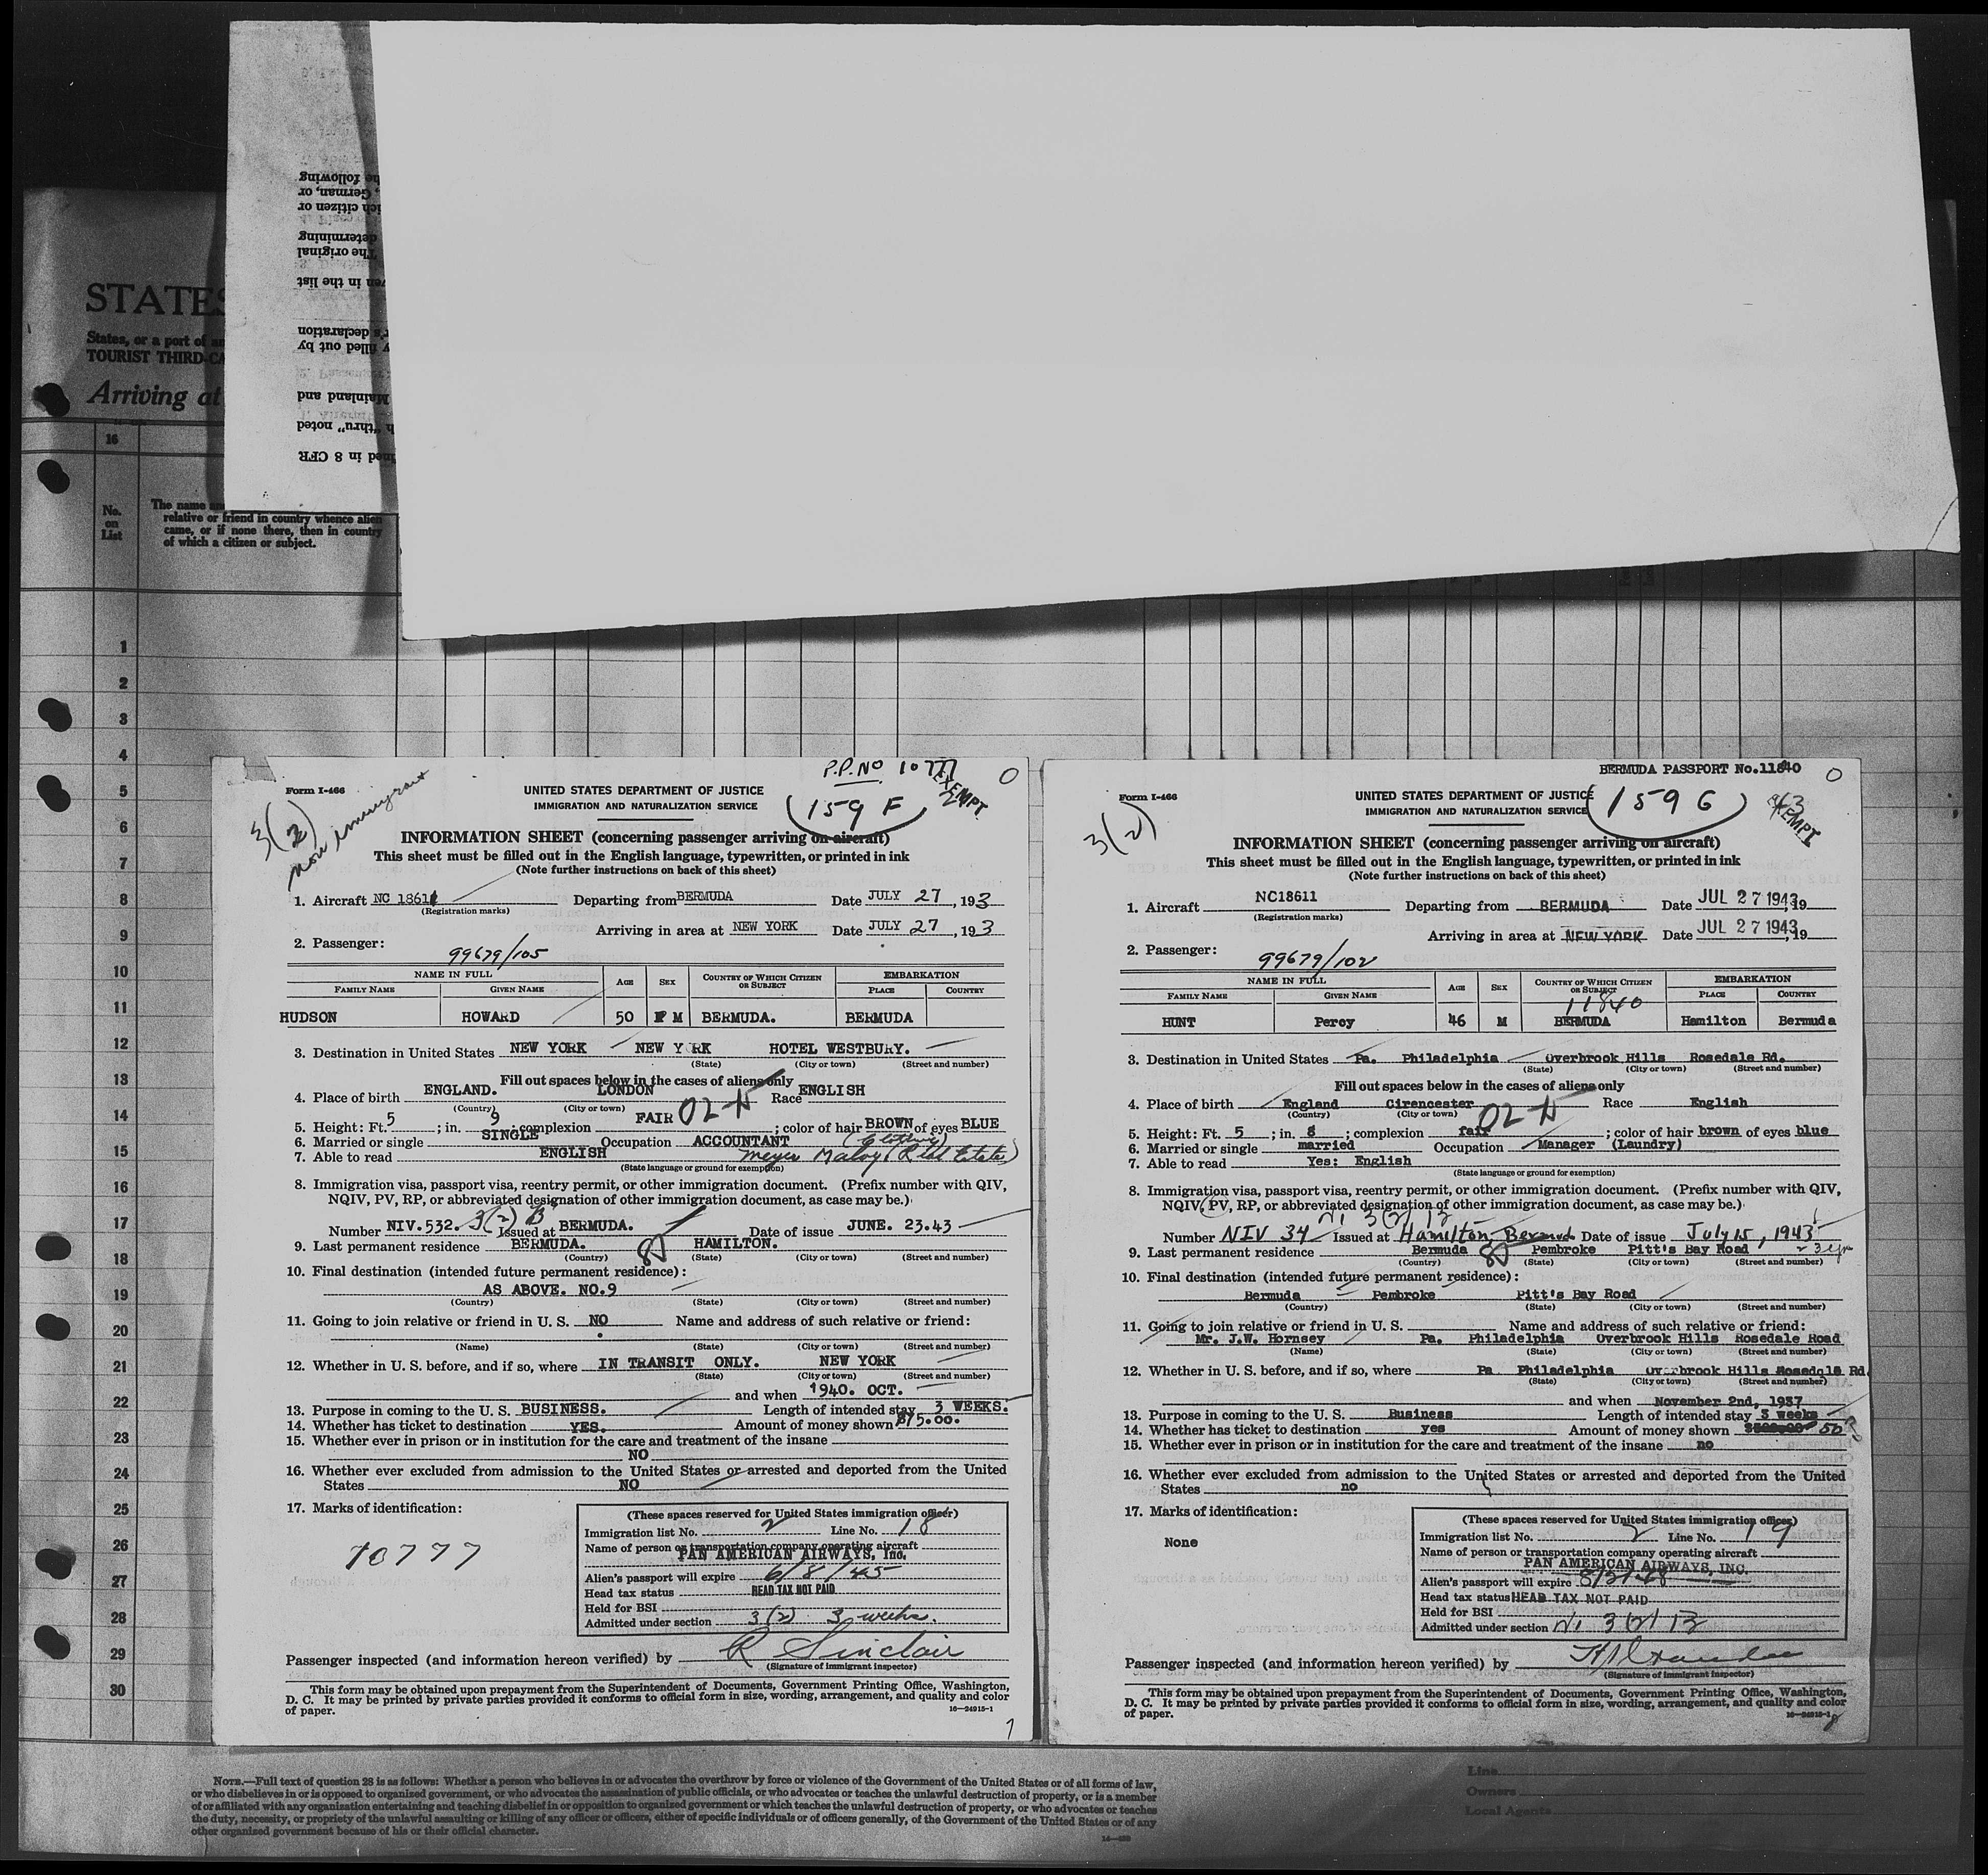 STATES
States, or a port of
TOURIST THIRD-CA
Arriving at
16
No.
on
List
The name
relative or friend in country whence alien
came, or if none there, then in country
of which a citizen or subject.
the following
, German, or
citizen or
determining
The original
in the list
declaration
filled out by
Mainland and
"thru" noted
in 8 CFR
1
2
3
4
5
6
7
8
9
10
11
12
13
14
15
16
17
18
19
20
21
22
23
24
25
26
27
28
29
30
P.P. NO 10777
EXEMPT
Form I-466
3(2)
non immigrant
UNITED STATES DEPARTMENT OF JUSTICE
IMMIGRATION AND NATURALIZATION SERVICE
159 F
INFORMATION SHEET (concerning passenger arriving on aircraft)
This sheet must be filled out in the English language, typewritten, or printed in ink
(Note further instructions on back of this sheet)
1. Aircraft NC 18611 Departing from BERMUDA Date JULY 27, 193
(Registration marks)
Arriving in area at NEW YORK Date JULY 27, 193
2. Passenger:
99679/105
NAME IN FULL AGE SEX COUNTRY OF WHICH CITIZEN OR SUBJECT EMBARKATION
FAMILY NAME GIVEN NAME PLACE COUNTRY
HUDSON HOWARD 50 M BERMUDA. BERMUDA
3. Destination in United States NEW YORK NEW Y RK HOTEL WESTBURY.
(State) (City or town) (Street and number)
Fill out spaces below in the cases of aliens only
4. Place of birth ENGLAND. LONDON Race ENGLISH
(Country) (City or town)
5. Height: Ft. 5; in. 9; complexion FAIR; color of hair BROWN of eyes BLUE
6. Married or single SINGLE Occupation ACCOUNTANT
7. Able to read ENGLISH
(State language or ground for exemption)
8. Immigration visa, passport visa, reentry permit, or other immigration document. (Prefix number with QIV,
NQIV, PV, RP, or abbreviated designation of other immigration document, as case may be.)
Number NIV.532. 3(2) B Issued at BERMUDA. Date of issue JUNE. 23.43
9. Last permanent residence BERMUDA. HAMILTON.
(Country) (State) (City or town) (Street and number)
10. Final destination (intended future permanent residence):
AS ABOVE. NO.9
(Country) (State) (City or town) (Street and number)
11. Going to join relative or friend in U. S. NO Name and address of such relative or friend:
(Name) (State) (City or town) (Street and number)
12. Whether in U. S. before, and if so, where IN TRANSIT ONLY. NEW YORK
(State) (City or town) (Street and number)
and when 1940. OCT.
13. Purpose in coming to the U. S. BUSINESS. Length of intended stay 3 WEEKS.
14. Whether has ticket to destination YES. Amount of money shown $75.00.
15. Whether ever in prison or in institution for the care and treatment of the insane
NO
16. Whether ever excluded from admission to the United States or arrested and deported from the United
States NO
17. Marks of identification:
10777
(These spaces reserved for United States immigration officer)
Immigration list No. 2 Line No. 18
Name of person or transportation company operating aircraft
PAN AMERICAN AIRWAYS, Inc.
Alien's passport will expire 6/8/45
Head tax status HEAD TAX NOT PAID
Held for BSI
Admitted under section 3(2) 3 weeks.
Passenger inspected (and information hereon verified) by R Sinclair
(Signature of immigrant inspector)
This form may be obtained upon prepayment from the Superintendent of Documents, Government Printing Office, Washington,
D. C. It may be printed by private parties provided it conforms to official form in size, wording, arrangement, and quality and color
of paper.
16—24915-1
BERMUDA PASSPORT No.11840
Form I-466
3(2)
UNITED STATES DEPARTMENT OF JUSTICE
IMMIGRATION AND NATURALIZATION SERVICE
159 G
INFORMATION SHEET (concerning passenger arriving on aircraft)
This sheet must be filled out in the English language, typewritten, or printed in ink
(Note further instructions on back of this sheet)
1. Aircraft NC18611 Departing from BERMUDA Date JUL 27 1943, 19
(Registration marks)
Arriving in area at NEW YORK Date JUL 27 1943, 19
2. Passenger:
99679/102
NAME IN FULL AGE SEX COUNTRY OF WHICH CITIZEN OR SUBJECT EMBARKATION
FAMILY NAME GIVEN NAME PLACE COUNTRY
11840
HUNT Percy 46 M BERMUDA Hamilton Bermuda
3. Destination in United States Pa. Philadelphia Overbrook Hills Rosedale Rd.
(State) (City or town) (Street and number)
Fill out spaces below in the cases of aliens only
4. Place of birth England Cirencester Race English
(Country) (City or town)
5. Height: Ft. 5; in. 8; complexion fair; color of hair brown of eyes blue
6. Married or single married Occupation Manager (Laundry)
7. Able to read Yes: English
(State language or ground for exemption)
8. Immigration visa, passport visa, reentry permit, or other immigration document. (Prefix number with QIV,
NQIV, PV, RP, or abbreviated designation of other immigration document, as case may be.)
Number NIV 34 Issued at Hamilton, Bermuda Date of issue July 15, 1943
9. Last permanent residence Bermuda Pembroke Pitt's Bay Road
(Country) (State) (City or town) (Street and number)
10. Final destination (intended future permanent residence):
Bermuda Pembroke Pitt's Bay Road
(Country) (State) (City or town) (Street and number)
11. Going to join relative or friend in U. S. Name and address of such relative or friend:
Mr. J.W. Hornsey Pa. Philadelphia Overbrook Hills Rosedale Road
(Name) (State) (City or town) (Street and number)
12. Whether in U. S. before, and if so, where Pa Philadelphia Overbrook Hills Rosedale Rd.
(State) (City or town) (Street and number)
and when November 2nd, 1937
13. Purpose in coming to the U. S. Business Length of intended stay 3 weeks
14. Whether has ticket to destination yes Amount of money shown 50
15. Whether ever in prison or in institution for the care and treatment of the insane no
16. Whether ever excluded from admission to the United States or arrested and deported from the United
States no
17. Marks of identification:
None
(These spaces reserved for United States immigration officer)
Immigration list No. 2 Line No. 19
Name of person or transportation company operating aircraft
PAN AMERICAN AIRWAYS, INC.
Alien's passport will expire
Head tax status HEAD TAX NOT PAID
Held for BSI
Admitted under section
Passenger inspected (and information hereon verified) by
(Signature of immigrant inspector)
This form may be obtained upon prepayment from the Superintendent of Documents, Government Printing Office, Washington,
D. C. It may be printed by private parties provided it conforms to official form in size, wording, arrangement, and quality and color
of paper.
NOTE.—Full text of question 28 is as follows: Whether a person who believes in or advocates the overthrow by force or violence of the Government of the United States or of all forms of law,
or who disbelieves in or is opposed to organized government, or who advocates the assassination of public officials, or who advocates or teaches the unlawful destruction of property, or is a member
of or affiliated with any organization entertaining and teaching disbelief in or opposition to organized government or which teaches the unlawful destruction of property, or who advocates or teaches
the duty, necessity, or propriety of the unlawful assaulting or killing of any officer or officers, either of specific individuals or of officers generally, of the Government of the United States or of any
other organized government because of his or their official character.
Line
Owners
Local Agents